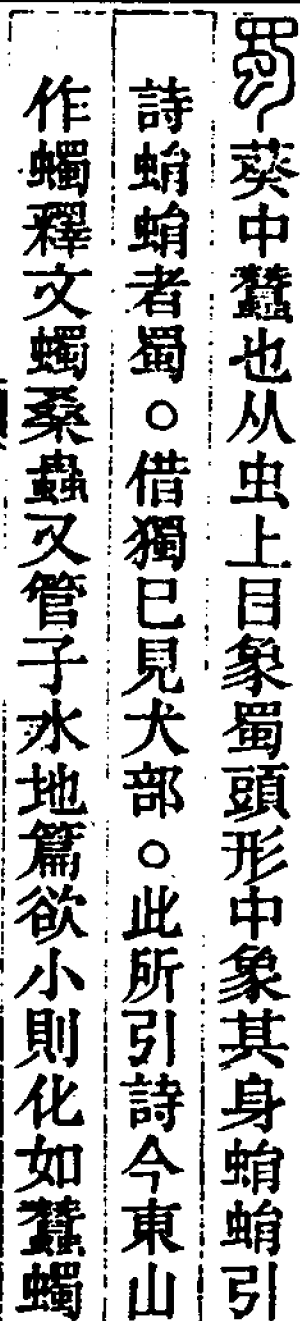 蜀葵中蠶也从虫上目象蜀頭形中象其身蜎蜎引
詩蜎蜎者蜀○借獨巳見犬部○此所引詩今東山
作蠋釋文蠋桑蟲又管子水地篇欲小則化如蠶蠋